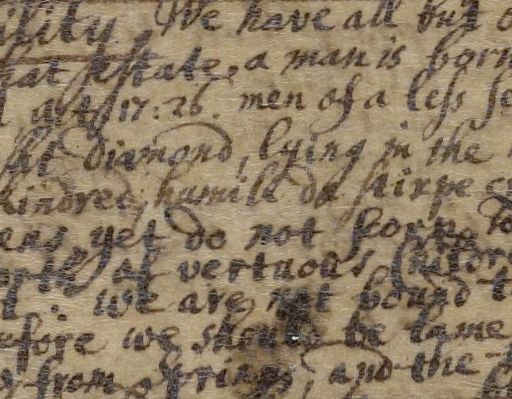 ility. We have all but o
hat Estate, a man is born
act. 17: 26. men of a less se
diamond, lying in the
kindred; humili de stirpe
yet do not scorn to
of vertuous kindre
we are not bound t
efore we should be lame
from, and the